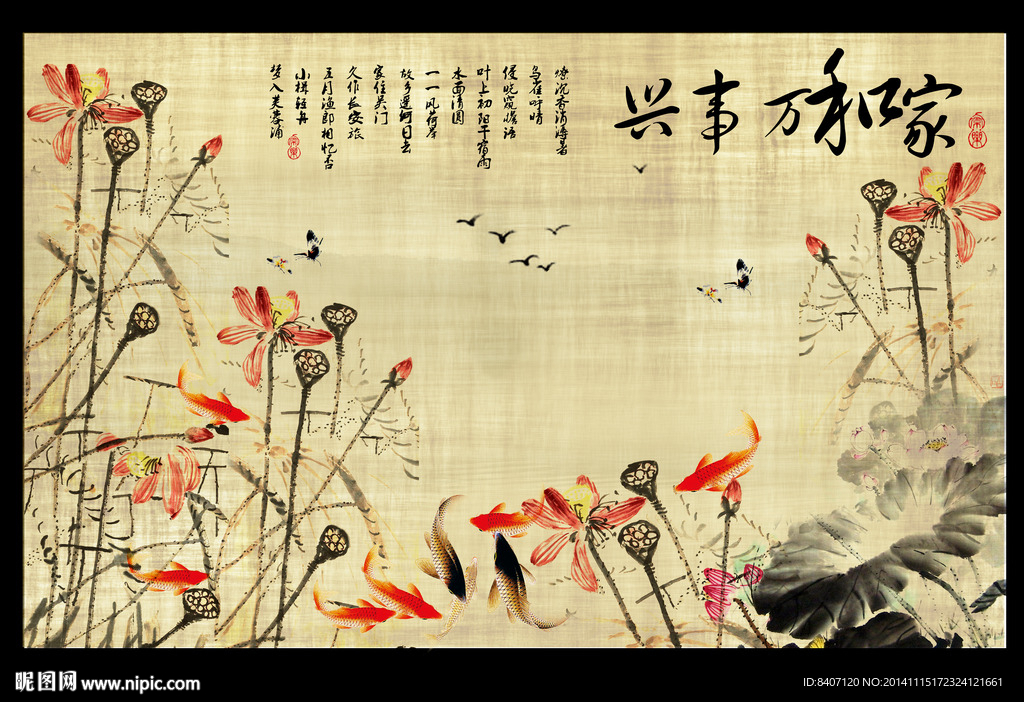 家和万事兴
燎沉香消溽暑
鸟雀呼晴
侵晓窥檐语
叶上初阳干宿雨
水面清圆
一一风荷举
故乡遥何日去
家住吴门
久作长安旅
五月渔郎相忆否
小楫轻舟
梦入芙蓉浦
昵图网 www.nipic.com
ID:8407120 NO:20141115172324121661